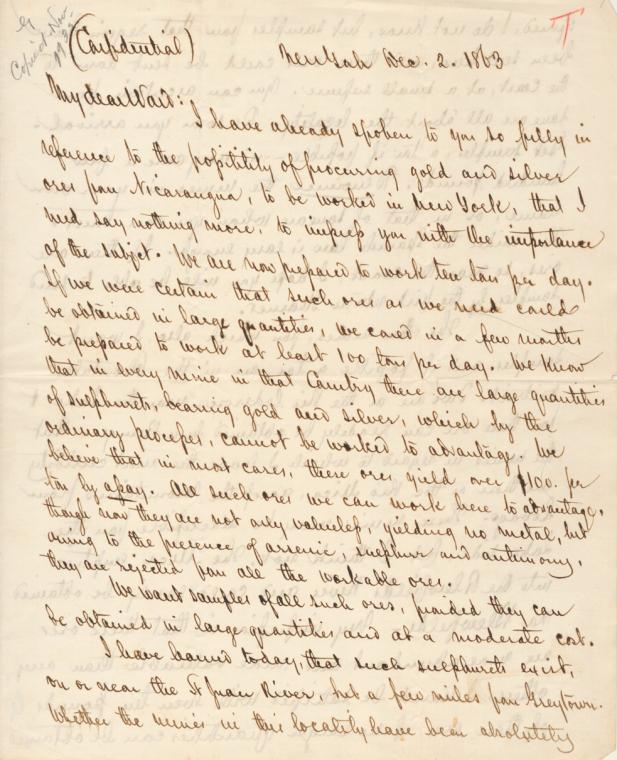 (Confidential)
T
Copied Nov.
Dec. 2. 1863
My dear Ward:
I have already spoken to you so fully in
reference to the possitity of procuring gold and silver
ores from Nicaraugua, to be worked in New York, that I
need say nothing more, to impress you with the importance
of the subject. We are now prepared to work ten tons per day.
If we were certain that such ores as we need could
be obtained in large quantities, we could in a few months
be prepared to work at least 100 tons per day. We know
that in every mine in that Country there are large quantities
of sulphurets, bearing gold and silver, which by the
ordinary processes, cannot be worked to advantage. We
believe that in most cases, these ores, yield over $100. per
ton by assay. All such ores we can work here to advantage,
though now they are not only valueless, yielding no metal, but
owing to the presence of arsenic, sulphur and antimony,
they are rejected from all the workable ores.
We want samples of all such ores, provided they can
be obtained in large quantities and at a moderate cost.
I have learned today, that such sulphurets exist,
on or near the St Juan River, but a few miles from Greytown.
Whether the mines in this locality have been absolutely